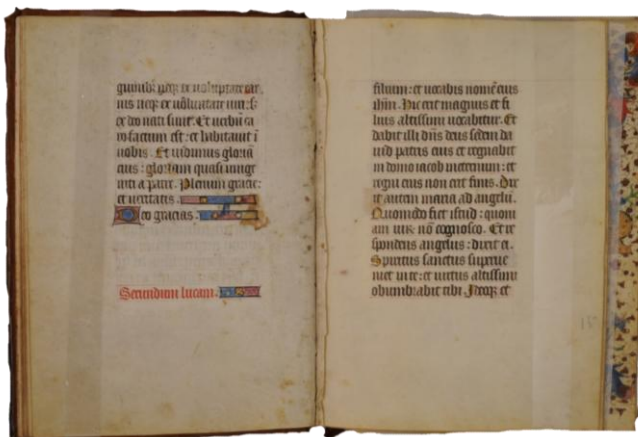 guinib; neq; ex uoluptate car
nis neq; ex uoluntate uiri: s;
ex deo nati sunt. Et uerbū ca
ro factum est: et habitauit ī
nobis. Et uidimus gloriā
eius: gloriam quasi unige
niti a patre. Plenum gracie:
et ueritatis.
Deo gracias.
Secundum lucam.
filium: et uocabis nomē eius
ihm̄. Hic erit magnus et fi
lius altissimi uocabitur. Et
dabit illi dn̄s deus sedem da
uid patris eius et regnabit
in domo iacob in eternum: et
regni eius non erit finis. Dix
it autem maria ad angelū.
Quomodo fiet istud: quoni
am uir̄ nō cognosco. Et re
spondens angelus: dixit ei.
Spiritus sanctus superue
niet in te: et uirtus altissimi
obumbrabit tibi. Ideoq; et